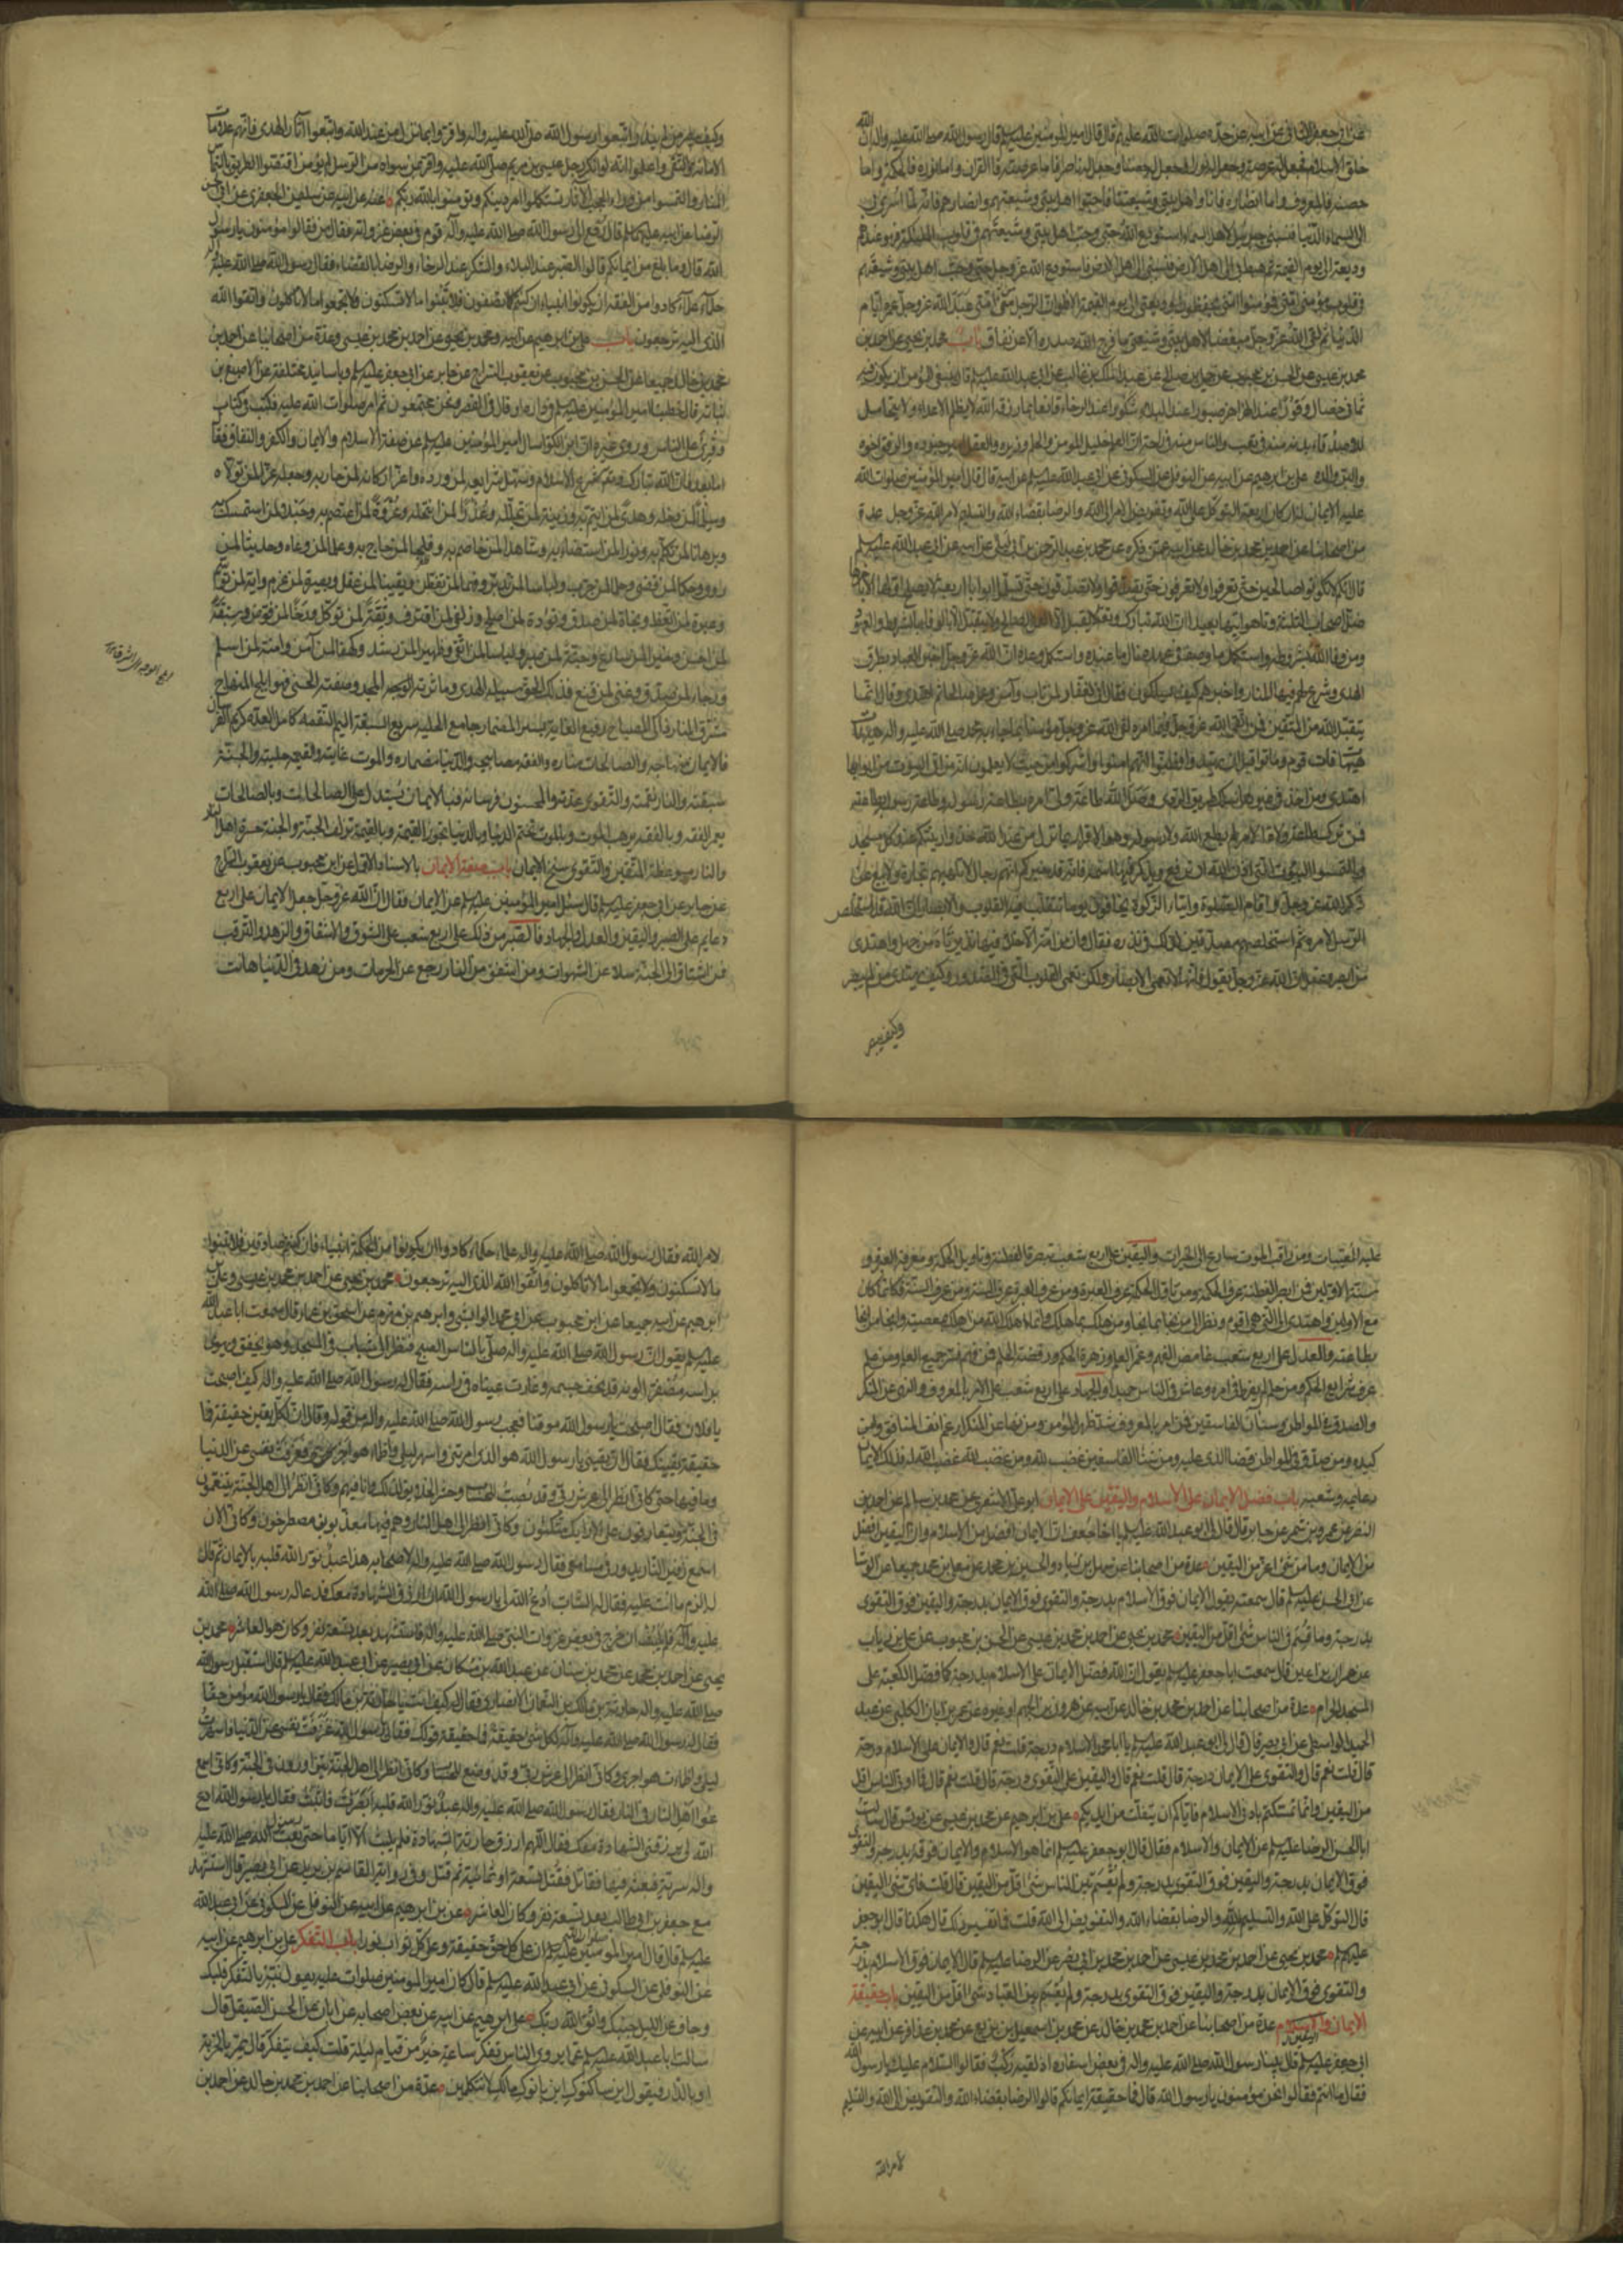 عن ابي جعفر الثاني عن ابيه عن جده صلوات الله عليهم قال قال امير المؤمنين عليه السلم قال رسول الله صلى الله عليه واله ان الله
خلق الاسلام فجعل له عرصة وجعل له نورا وجعل له حصنا وجعل له ناصرا فاما عرصته فالقران واما نوره فالحكمة واما
حصنه فالمعروف واما انصاره فانا واهل بيتي وشيعتنا فاحبوا اهل بيتي وشيعتهم وانصارهم فانه لما اسري بي
الى السماء الدنيا فنسبني جبرئيل لاهل السماء استودع الله حبي وحب اهل بيتي وشيعتهم في قلوب الملئكة فهو عندهم
وديعة الى يوم القيمة ثم هبط بي الى اهل الارض فنسبني الى اهل الارض فاستودع الله عز وجل حبي وحب اهل بيتي وشيعتهم
في قلوب مؤمني امتي فمؤمنوا امتي يحفظون وديعتي الى يوم القيمة الا فلو ان الرجل من امتي عبد الله عز وجل عمره ايام
الدنيا ثم لقى الله عز وجل مبغضا لاهل بيتي وشيعتي ما فرج الله صدره الا عن نفاق باب محمد بن يحيى عن احمد بن
محمد بن عيسى عن الحسن بن محبوب عن جميل بن صالح عن عبد الملك بن غالب عن ابي عبد الله عليه السلم قال ينبغي للمؤمن ان يكون فيه
ثماني خصال وقورا عند الهزاهز صبورا عند البلاء شكورا عند الرخاء قانعا بما رزقه الله لا يظلم الاعداء ولا يتحامل
للاصدقاء بدنه منه في تعب والناس منه في راحة ان العلم خليل المؤمن والحلم وزيره والعقل امير جنوده والرفق اخوه
والبر والده علي بن ابرهيم عن ابيه عن النوفلي عن السكوني عن ابي عبد الله عليه السلم عن ابيه قال قال امير المؤمنين صلوات الله
عليه الايمان له اركان اربعة التوكل على الله وتفويض الامر الى الله والرضا بقضاء الله والتسليم لامر الله عز وجل عدة
من اصحابنا عن احمد بن محمد بن خالد عن ابيه عمن ذكره عن محمد بن عبد الرحمن بن ابي ليلى عن ابيه عن ابي عبد الله عليه السلم
قال انكم لا تكونوا صالحين حتى تعرفوا ولا تعرفون حتى تصدقوا ولا تصدقون حتى تسلموا ابوابا اربعة لا يصلح اولها الا باخرها
ضل اصحاب الثلثة وتاهوا تيها بعيدا ان الله تبارك وتعالى لا يقبل الا العمل الصالح ولا يتقبل الا بالوفاء بالشروط والعهود
ومن وفا الله بشروطه واستكمل ما وصف في عهده نال ما عنده واستكمل وعده ان الله عز وجل اخبر العباد بطرق
الهدى وشرع لهم فيها المنار واخبرهم كيف يسلكون فقال اني لغفار لمن تاب وآمن وعمل صالحا ثم اهتدى وقال انما
يتقبل الله من المتقين فمن اتقى الله عز وجل فيما امره لقى الله عز وجل مؤمنا بما جاء به محمد صلى الله عليه واله هيهات
هيهات فات قوم وماتوا قبل ان يهتدوا وظنوا انهم امنوا واشركوا من حيث لا يعلمون انه من اتى البيوت من ابوابها
اهتدى ومن اخذ في غيرها سلك طريق الردى وصل الله طاعة ولي امره بطاعة رسوله وطاعة رسوله بطاعته
فمن ترك طاعة ولاة الامر لم يطع الله ولا رسوله وهو الاقرار بما نزل من عند الله خذوا زينتكم عند كل مسجد
والتمسوا البيوت التي اذن الله ان ترفع ويذكر فيها اسمه فانه قد خبركم انهم رجال لا تلهيهم تجارة ولا بيع عن
ذكر الله عز وجل واقام الصلوة وايتاء الزكوة يخافون يوما تتقلب فيه القلوب والابصار ان الله قد استخلص
الرسل لامره ثم استخلصهم مصدقين لذلك في نذره فقال وان من امة الا خلا فيها نذير تاه من جهل واهتدى
من ابصر وعقل ان الله عز وجل يقول فانها لا تعمى الابصار ولكن تعمى القلوب التي في الصدور وكيف يهتدي من لم يبصر
وكيف يبصر
وكيف يبصر من لم ينذر اتبعوا رسول الله صلى الله عليه واله واقروا بما نزل من عند الله واتبعوا آثار الهدى فانهم علامات
الامانة والتقى واعلموا انه لو انكر رجل عيسى بن مريم صلى الله عليه واقر بمن سواه من الرسل لم يؤمن اقتصوا الطريق بالتماس
المنار والتمسوا من وراء الحجب الآثار تستكملوا امر دينكم وتؤمنوا بالله ربكم عنه عن ابيه عن سليمن الجعفري عن ابي الحسن
الرضا عن ابيه عليهما السلم قال رفع الى رسول الله صلى الله عليه وآله قوم في بعض غزواته فقال من القوم فقالوا مؤمنون يا رسول
الله قال وما بلغ من ايمانكم قالوا الصبر عند البلاء والشكر عند الرخاء والرضا بالقضاء فقال رسول الله صلى الله عليه واله
حلماء علماء كادوا من الفقه ان يكونوا انبياء ان كنتم كما تصفون فلا تبنوا ما لا تسكنون ولا تجمعوا ما لا تاكلون واتقوا الله
الذي اليه ترجعون باب علي بن ابرهيم عن ابيه ومحمد بن يحيى عن احمد بن محمد بن عيسى وعدة من اصحابنا عن احمد بن
محمد بن خالد جميعا عن الحسن بن محبوب عن يعقوب السراج عن جابر عن ابي جعفر عليه السلم وباسانيد مختلفة عن الاصبغ بن
نباته قال خطبنا امير المؤمنين عليه السلم في داره او قال في القصر ونحن مجتمعون ثم امر صلوات الله عليه فكتب في كتاب
وقرئ على الناس وروى غيره ان ابن الكوا سال امير المؤمنين عليه السلم عن صفة الاسلام والايمان والكفر والنفاق فقال
اما بعد فان الله تبارك وتعالى شرع الاسلام وسهل شرايعه لمن ورده واعز اركانه لمن حاربه وجعله عزا لمن تولاه
وسلما لمن دخله وهدى لمن ايتم به وزينة لمن تجلله وعذرا لمن انتحله وعروة لمن اعتصم به وحبلا لمن استمسك به
وبرهانا لمن تكلم به ونورا لمن استضاء به وشاهدا لمن خاصم به وفلجا لمن حاج به وعلما لمن وعاه وحديثا لمن
روى وحكما لمن قضى وحلما لمن جرب ولباسا لمن تدبر وفهما لمن تفطن ويقينا لمن عقل وبصيرة لمن عزم واية لمن توسم
وعبرة لمن اتعظ ونجاة لمن صدق وتؤدة لمن اصلح وزلفى لمن اقترف وثقة لمن توكل ورخا لمن فوض وسبقة
لمن احسن وخيرا لمن سارع وجنة لمن صبر ولباسا لمن اتقى وظهيرا لمن رشد وكهفا لمن آمن وامنة لمن اسلم
ورجاء لمن صدق وغنى لمن قنع فذلك الحق سبيله الهدى وماثرته المجد وصفته الحسنى فهو ابلج المنهاج
مشرق المنار ذاكي المصباح رفيع الغاية يسير المضمار جامع الحلبة سريع السبقة اليم النقمة كامل العدة كريم الفرسان
فالايمان منهاجه والصالحات مناره والفقه مصابيحه والدنيا مضماره والموت غايته والقيمة حلبته والجنة
سبقته والنار نقمته والتقوى عدته والمحسنون فرسانه فبالايمان يستدل على الصالحات وبالصالحات
يعمر الفقه وبالفقه يرهب الموت وبالموت تختم الدنيا وبالدنيا تجوز القيمة وبالقيمة تزلف الجنة والجنة حسرة اهل النار
والنار موعظة المتقين والتقوى سنخ الايمان باب صفة الايمان بالاسناد الاول عن ابن محبوب عن يعقوب السراج
عن جابر عن ابي جعفر عليه السلم قال سئل امير المؤمنين عليه السلم عن الايمان فقال ان الله عز وجل جعل الايمان على اربع
دعايم على الصبر واليقين والعدل والجهاد فالصبر من ذلك على اربع شعب على الشوق والاشفاق والزهد والترقب
فمن اشتاق الى الجنة سلا عن الشهوات ومن اشفق من النار رجع عن الحرمات ومن زهد في الدنيا هانت
عليه المصيبات ومن راقب الموت سارع الى الخيرات واليقين على اربع شعب تبصرة الفطنة وتاويل الحكمة ومعرفة العبرة و
سنة الاولين فمن ابصر الفطنة عرف الحكمة ومن تاول الحكمة عرف العبرة ومن عرف العبرة عرف السنة ومن عرف السنة فكانما كان
مع الاولين واهتدى الى التي هي اقوم ونظر الى من نجا بما نجا ومن هلك بما هلك وانما اهلك الله من اهلك بمعصيته وانجا من انجا
بطاعته والعدل على اربع شعب غامض الفهم وغمر العلم وزهرة الحكم وروضة الحلم فمن فهم فسر جميع العلم ومن علم
عرف شرايع الحكم ومن حلم لم يفرط في امره وعاش في الناس حميدا والجهاد على اربع شعب على الامر بالمعروف والنهي عن المنكر
والصدق في المواطن وشنآن الفاسقين فمن امر بالمعروف شد ظهر المؤمن ومن نهى عن المنكر ارغم انف المنافق وامن
كيده ومن صدق في المواطن قضا الذي عليه ومن شنا الفاسقين غضب لله ومن غضب لله غضب الله له فذلك الايمان
دعايمه وشعبه باب فضل الايمان على الاسلام واليقين على الايمان ابو علي الاشعري عن محمد بن سالم عن احمد بن
النضر عن عمرو بن شمر عن جابر قال قال لي ابو عبد الله عليه السلم يا اخا جعف ان الايمان افضل من الاسلام وان اليقين افضل
من الايمان وما من شئ اعز من اليقين عدة من اصحابنا عن سهل بن زياد والحسين بن محمد عن معلى بن محمد جميعا عن الوشا
عن ابي الحسن عليه السلم قال سمعته يقول الايمان فوق الاسلام بدرجة والتقوى فوق الايمان بدرجة واليقين فوق التقوى
بدرجة وما قسم في الناس شئ اقل من اليقين محمد بن يحيى عن احمد بن محمد بن عيسى عن الحسن بن محبوب عن علي بن رياب
عن حمران بن اعين قال سمعت ابا جعفر عليه السلم يقول ان الله فضل الايمان على الاسلام بدرجة كما فضل الكعبة على
المسجد الحرام عدة من اصحابنا عن احمد بن محمد بن خالد عن ابيه عن هرون بن الجهم او غيره عن عمر بن ابان الكلبي عن عبد
الحميد الواسطي عن ابي بصير قال قال لي ابو عبد الله عليه السلم يا ابا محمد الاسلام درجة قلت نعم قال والايمان على الاسلام درجة
قال قلت نعم قال والتقوى على الايمان درجة قال قلت نعم قال واليقين على التقوى درجة قال قلت نعم قال فما اوتي الناس اقل
من اليقين وانما تمسكتم بادنى الاسلام فاياكم ان ينفلت من ايديكم علي بن ابرهيم عن محمد بن عيسى عن يونس قال سالت
ابا الحسن الرضا عليه السلم عن الايمان والاسلام فقال قال ابو جعفر عليه السلم انما هو الاسلام والايمان فوقه بدرجة والتقوى
فوق الايمان بدرجة واليقين فوق التقوى بدرجة ولم يقسم بين الناس شئ اقل من اليقين قال قلت فاي شئ اليقين
قال التوكل على الله والتسليم لله والرضا بقضاء الله والتفويض الى الله قلت فما تفسير ذلك قال هكذا قال ابو جعفر
عليه السلم محمد بن يحيى عن احمد بن محمد بن عيسى عن احمد بن محمد بن ابي نصر عن الرضا عليه السلم قال الايمان فوق الاسلام بدرجة
والتقوى فوق الايمان بدرجة واليقين فوق التقوى بدرجة ولم يقسم بين العباد شئ اقل من اليقين باب حقيقة
الايمان واليقين عدة من اصحابنا عن احمد بن محمد بن خالد عن محمد بن اسمعيل بن بزيع عن محمد بن عذافر عن ابيه عن
ابي جعفر عليه السلم قال بينا رسول الله صلى الله عليه واله في بعض اسفاره اذ لقيه ركب فقالوا السلام عليك يا رسول الله
فقال ما انتم فقالوا نحن مؤمنون يا رسول الله قال فما حقيقة ايمانكم قالوا الرضا بقضاء الله والتفويض الى الله والتسليم
لامر الله
لامر الله فقال رسول الله صلى الله عليه واله علماء حكماء كادوا ان يكونوا من الحكمة انبياء فان كنتم صادقين فلا تبنوا
ما لا تسكنون ولا تجمعوا ما لا تاكلون واتقوا الله الذي اليه ترجعون محمد بن يحيى عن احمد بن محمد بن عيسى وعلي بن
ابرهيم عن ابيه جميعا عن ابن محبوب عن ابي محمد الوابشي وابرهيم بن مهزم عن اسحق بن عمار قال سمعت ابا عبد الله
عليه السلم يقول ان رسول الله صلى الله عليه واله صلى بالناس الصبح فنظر الى شاب في المسجد وهو يخفق ويهوي
براسه مصفرا لونه قد نحف جسمه وغارت عيناه في راسه فقال له رسول الله صلى الله عليه واله كيف اصبحت
يا فلان فقال اصبحت يا رسول الله موقنا فعجب رسول الله صلى الله عليه واله من قوله وقال ان لكل يقين حقيقة فما
حقيقة يقينك فقال ان يقيني يا رسول الله هو الذي احزنني واسهر ليلي واظماء هواجري فعزفت نفسي عن الدنيا
وما فيها حتى كاني انظر الى عرش ربي وقد نصب للحساب وحشر الخلايق لذلك وانا فيهم وكاني انظر الى اهل الجنة يتنعمون
في الجنة ويتعارفون على الارايك متكئون وكاني انظر الى اهل النار وهم فيها معذبون مصطرخون وكاني الان
اسمع زفير النار يدور في مسامعي فقال رسول الله صلى الله عليه واله لاصحابه هذا عبد نور الله قلبه بالايمان ثم قال
له الزم ما انت عليه فقال له الشاب ادع الله لي يا رسول الله ان ارزق الشهادة معك فدعا له رسول الله صلى الله
عليه وآله فلم يلبث ان خرج في بعض غزوات النبي صلى الله عليه واله فاستشهد بعد تسعة نفر وكان هو العاشر محمد بن
يحيى عن احمد بن محمد عن محمد بن سنان عن عبد الله بن مسكان عن ابي بصير عن ابي عبد الله عليه السلم قال استقبل رسول الله
صلى الله عليه واله حارثة بن مالك بن النعمان الانصاري فقال له كيف انت يا حارثة بن مالك فقال يا رسول الله مؤمن حقا
فقال له رسول الله صلى الله عليه وآله لكل شئ حقيقة فما حقيقة قولك فقال يا رسول الله عزفت نفسي عن الدنيا فاسهرت
ليلي واظمات هواجري وكاني انظر الى عرش ربي وقد وضع للحساب وكاني انظر الى اهل الجنة يتزاورون في الجنة وكاني اسمع
عواء اهل النار في النار فقال رسول الله صلى الله عليه واله عبد نور الله قلبه ابصرت فاثبت فقال يا رسول الله ادع
الله لي ان يرزقني الشهادة معك فقال اللهم ارزق حارثة الشهادة فلم يلبث الا اياما حتى بعث رسول الله صلى الله عليه
واله سرية فبعثه فيها فقاتل فقتل تسعة او ثمانية ثم قتل وفي رواية القاسم بن بريد عن ابي بصير قال استشهد
مع جعفر بن ابي طالب بعد تسعة نفر وكان هو العاشر علي بن ابرهيم عن ابيه عن النوفلي عن السكوني عن ابي عبد الله
عليه السلم قال قال امير المؤمنين صلوات الله عليه ان على كل حق حقيقة وعلى كل صواب نورا باب التفكر علي بن ابرهيم عن ابيه
عن النوفلي عن السكوني عن ابي عبد الله عليه السلم قال كان امير المؤمنين صلوات الله عليه يقول نبه بالتفكر قلبك
وجاف عن الليل جنبك واتق الله ربك علي بن ابرهيم عن ابيه عن بعض اصحابه عن ابان عن الحسن الصيقل قال
سالت ابا عبد الله عليه السلم عما يروي الناس تفكر ساعة خير من قيام ليلة قلت كيف يتفكر قال يمر بالخربة
او بالدار فيقول اين ساكنوك اين بانوك مالك لا تتكلمين عدة من اصحابنا عن احمد بن محمد بن خالد عن احمد بن